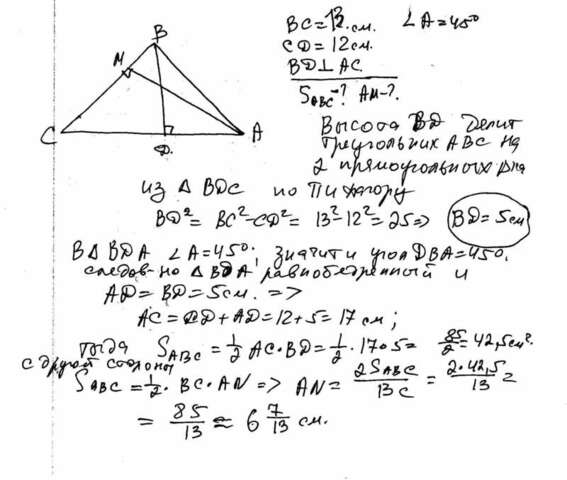 B
M
C
D
A
BC=13 см. ∠A=45°
CD=12см.
BD⊥AC.
S_ABC-? AM-?.
Высота BD делит
треугольник ABC на
2 прямоугольных Δка
из Δ BDC по Пифагору
BD²= BC²-CD²= 13²-12²=25=> BD=5см
В Δ BDA ∠A=45°, значит и угол DBA=45°,
следов-но Δ BDA равнобедренный и
AD=BD=5см. =>
AC=CD+AD=12+5=17 см;
тогда S_ABC=1/2 AC·BD=1/2·17·5= 85/2=42,5см².
с другой стороны
S_ABC=1/2·BC·AN=> AN= 2S_ABC/BC = 2·42,5/13 =
= 85/13 = 6 7/13 см.